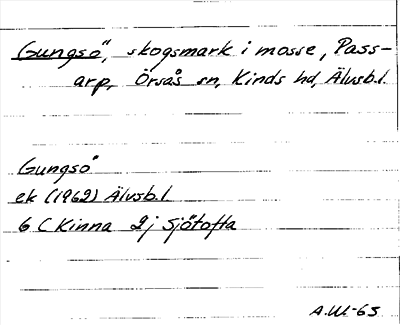 Gungsö, skogsmark i mosse, Pass-
arp, Örsås sn, Kinds hd, Älvsb.l.
Gungsö
ek (1962) Älvsb.l
6 C Kinna 2j Sjötofta
A.W-63